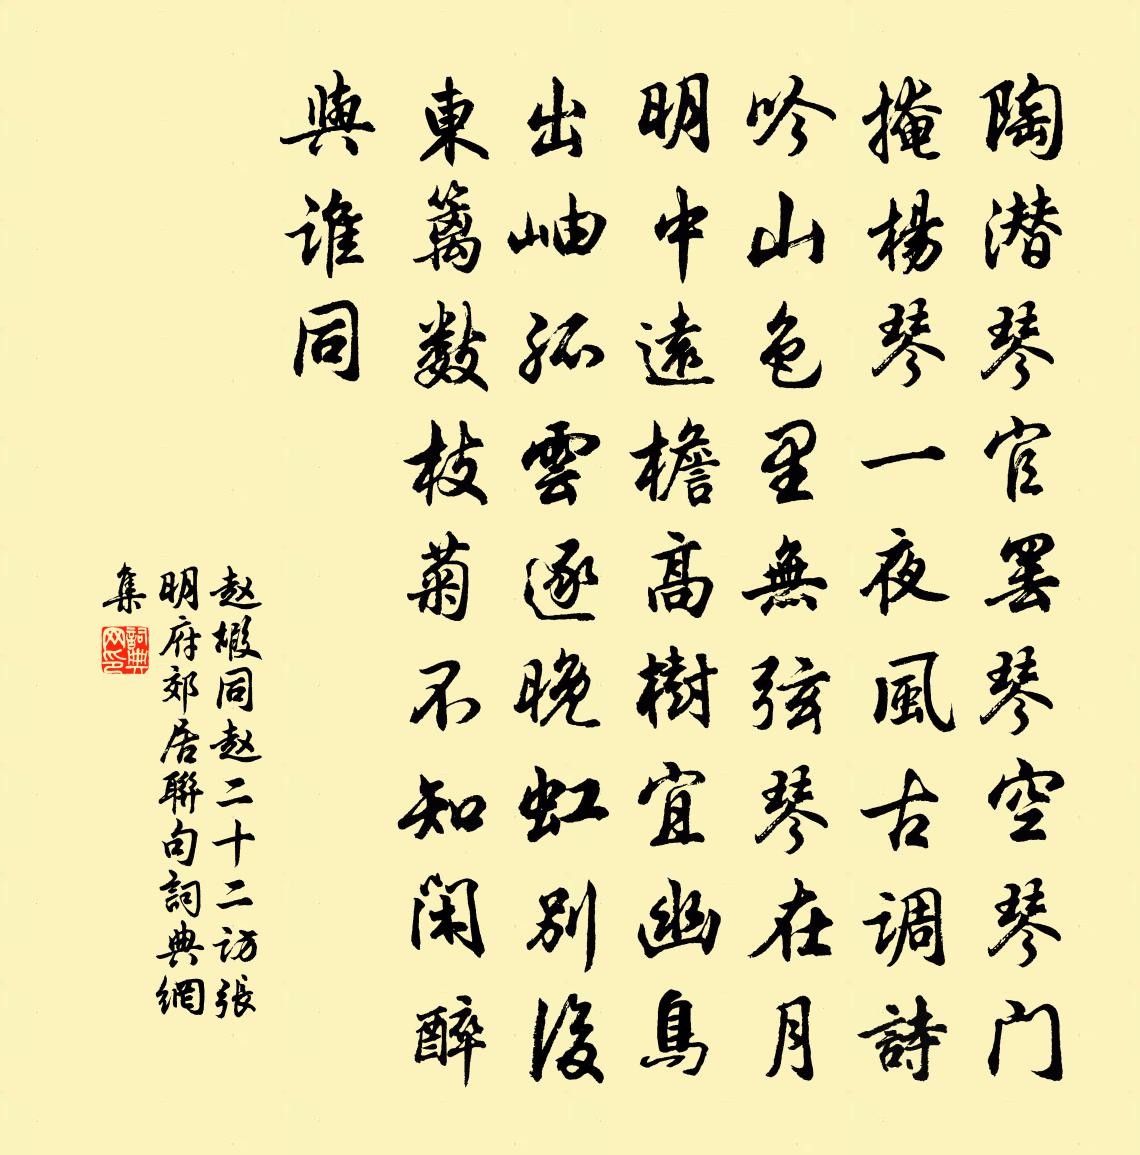 陶潜琴官罢琴空琴门
掩楊琴一夜風古调詩
吟山色里無弦琴在月
明中遠檐高樹宜幽鳥
出岫孤雲逐晚虹別後
東篱数枝菊不知閑醉
與谁同
赵嘏同赵二十二访張
明府郊居聯句詞典網
集
詞典网印